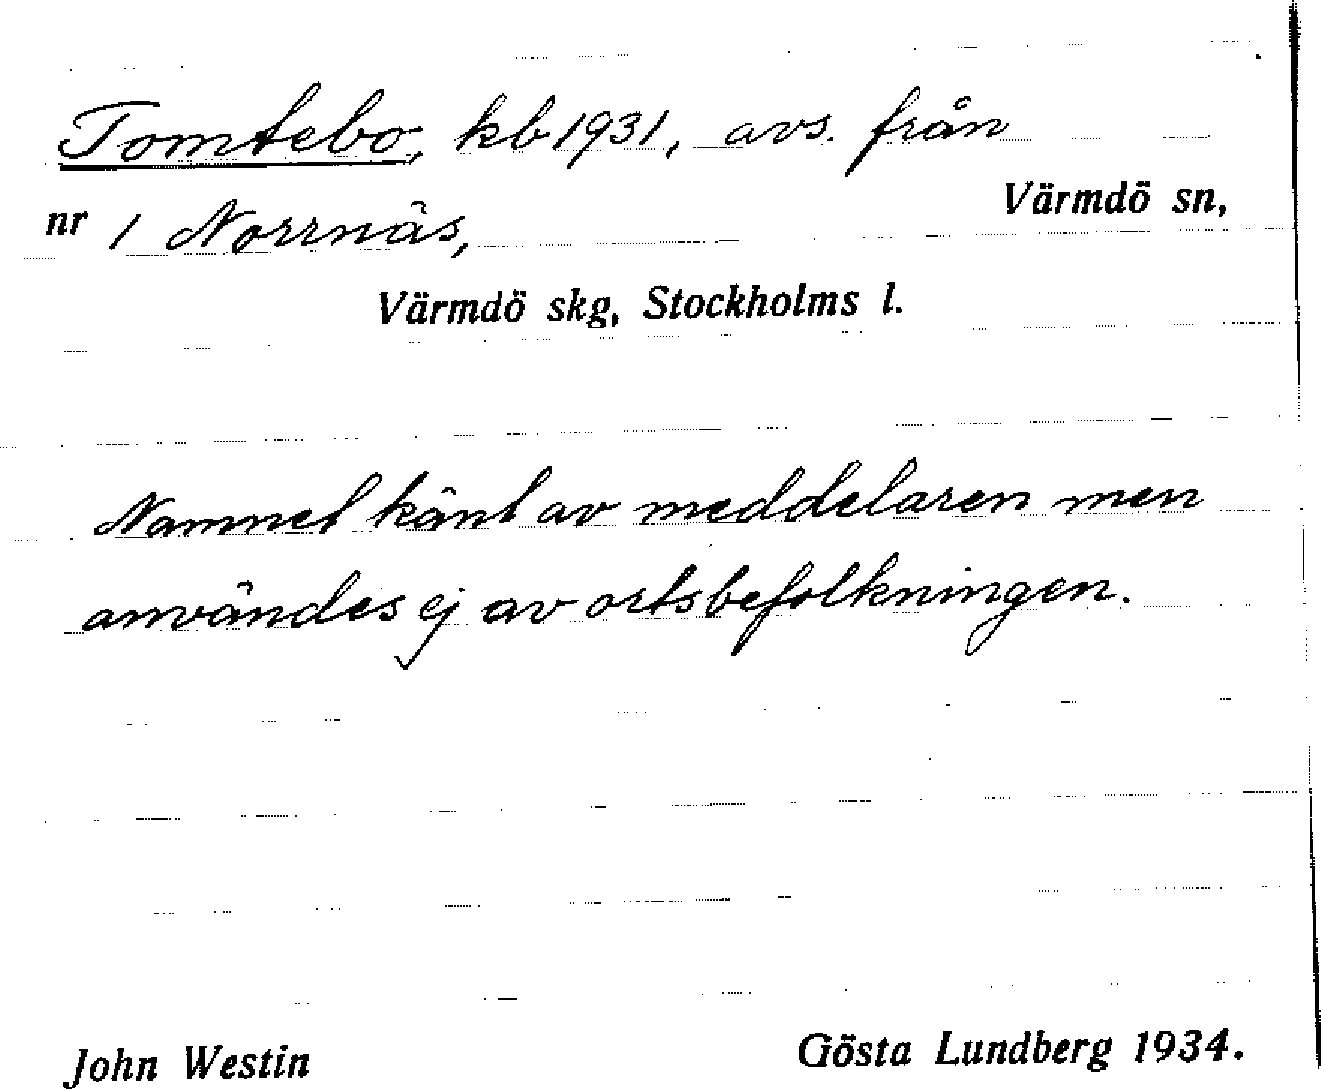 Tomtebo, kb 1931, avs. från
nr 1 Norrnäs, Värmdö sn,
Värmdö skg, Stockholms l.
Namnet känt av meddelaren men
användes ej av ortsbefolkningen.
John Westin Gösta Lundberg 1934.